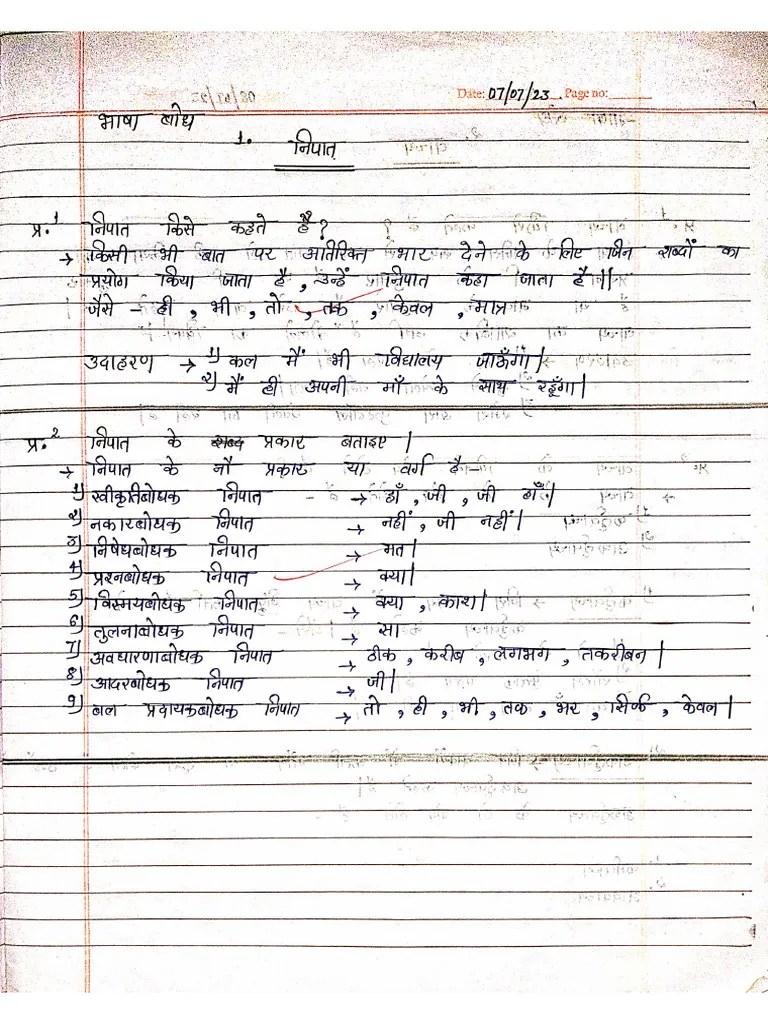 Date: 07/07/23 Page no:
भाषा बोध
1. निपात
प्र.1 निपात किसे कहते हैं?
→ किसी भी बात पर अतिरिक्त भार देने के लिए जिन शब्दों का
प्रयोग किया जाता है, उन्हें निपात कहा जाता है।
जैसे - ही, भी, तो, तक, केवल, मात्र
उदाहरण → 1) कल मैं भी विद्यालय जाऊँगा।
2) मैं ही अपनी माँ के साथ रहूँगा।
प्र.2 निपात के प्रकार बताइए।
→ निपात के नौ प्रकार या वर्ग है-
1) स्वीकृतिबोधक निपात → हाँ, जी, जी हाँ।
2) नकारबोधक निपात → नहीं, जी नहीं।
3) निषेधबोधक निपात → मत।
4) प्रश्नबोधक निपात → क्या।
5) विस्मयबोधक निपात → क्या, काश।
6) तुलनाबोधक निपात → सा।
7) अवधारणाबोधक निपात → ठीक, करीब, लगभग, तकरीबन।
8) आदरबोधक निपात → जी।
9) बल प्रदायकबोधक निपात → तो, ही, भी, तक, भँर, सिर्फ, केवल।